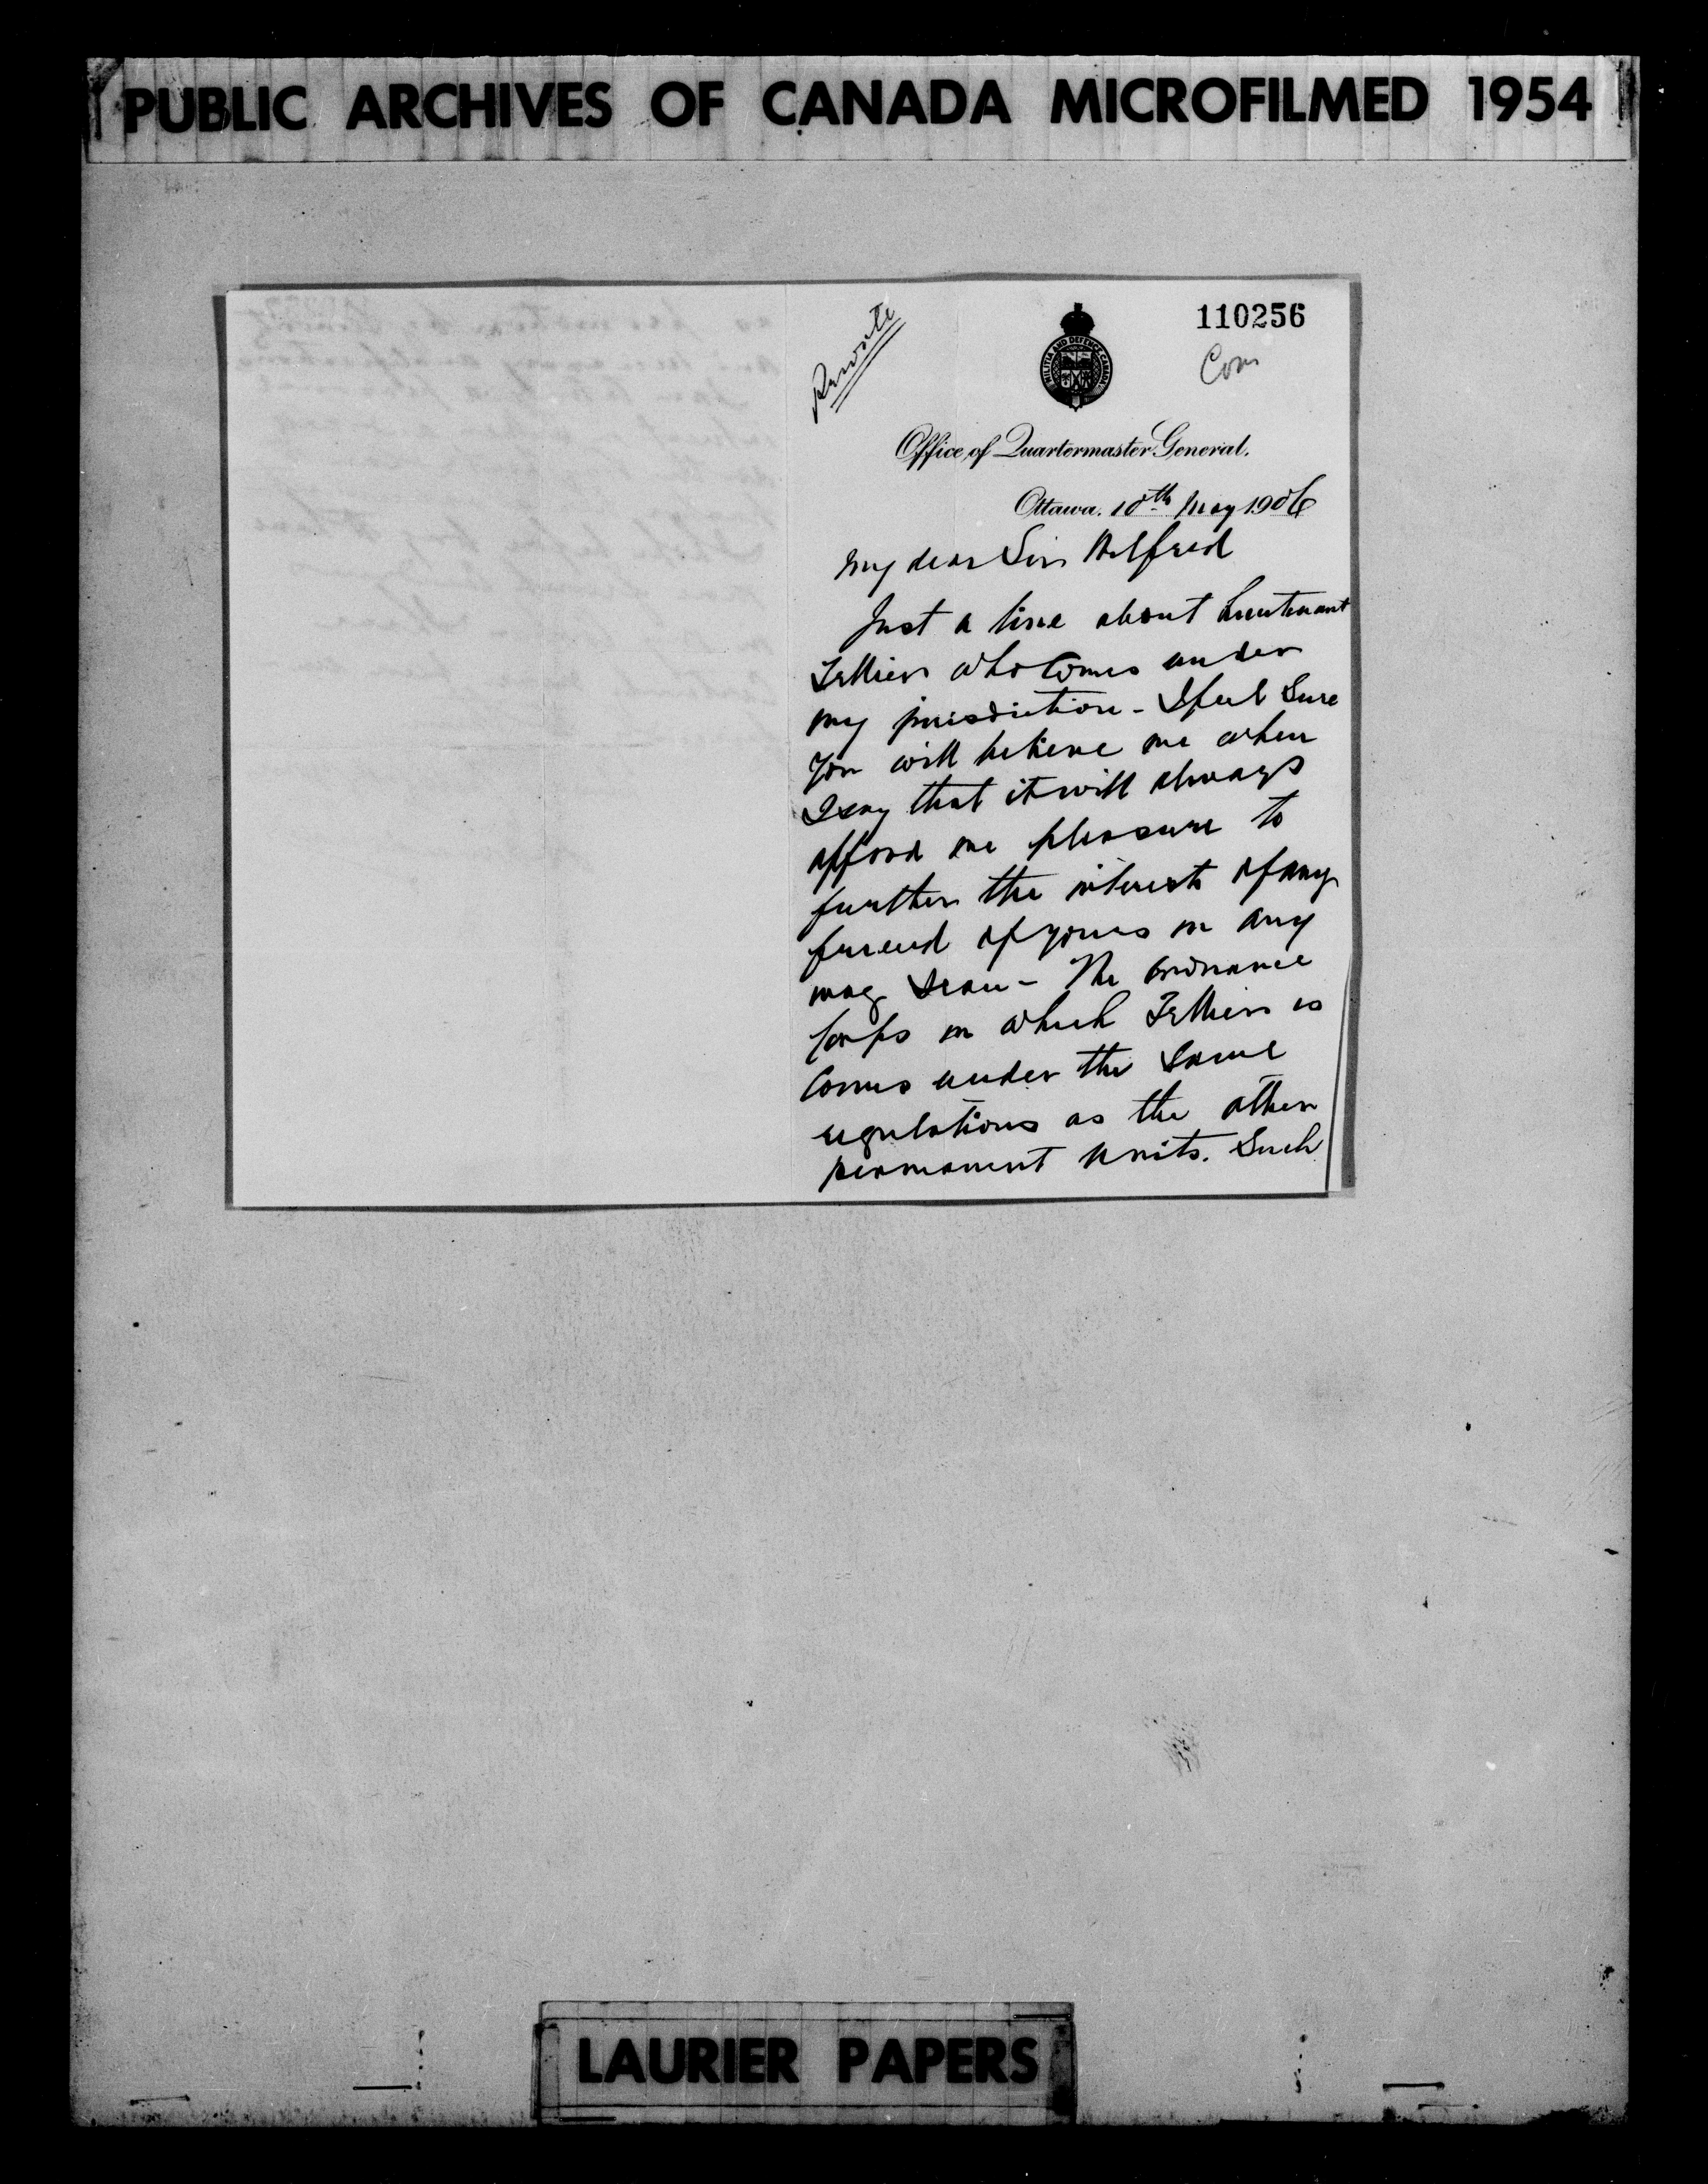 PUBLIC ARCHIVES OF CANADA MICROFILMED 1954
110256
Private
Com
MILITIA AND DEFENCE CANADA
Office of Quartermaster General.
Ottawa. 10th May 1906
My dear Sir Wilfred
Just a line about Lieutenant
Tellier who comes under
my jurisdiction - I feel Sure
you will believe me when
I say that it will always
afford me pleasure to
further the interests of any
friend of yours in any
way I can - The Ordnance
Corps in which Tellier is
Comes under the Same
regulations as the other
permanent units. Such
LAURIER PAPERS